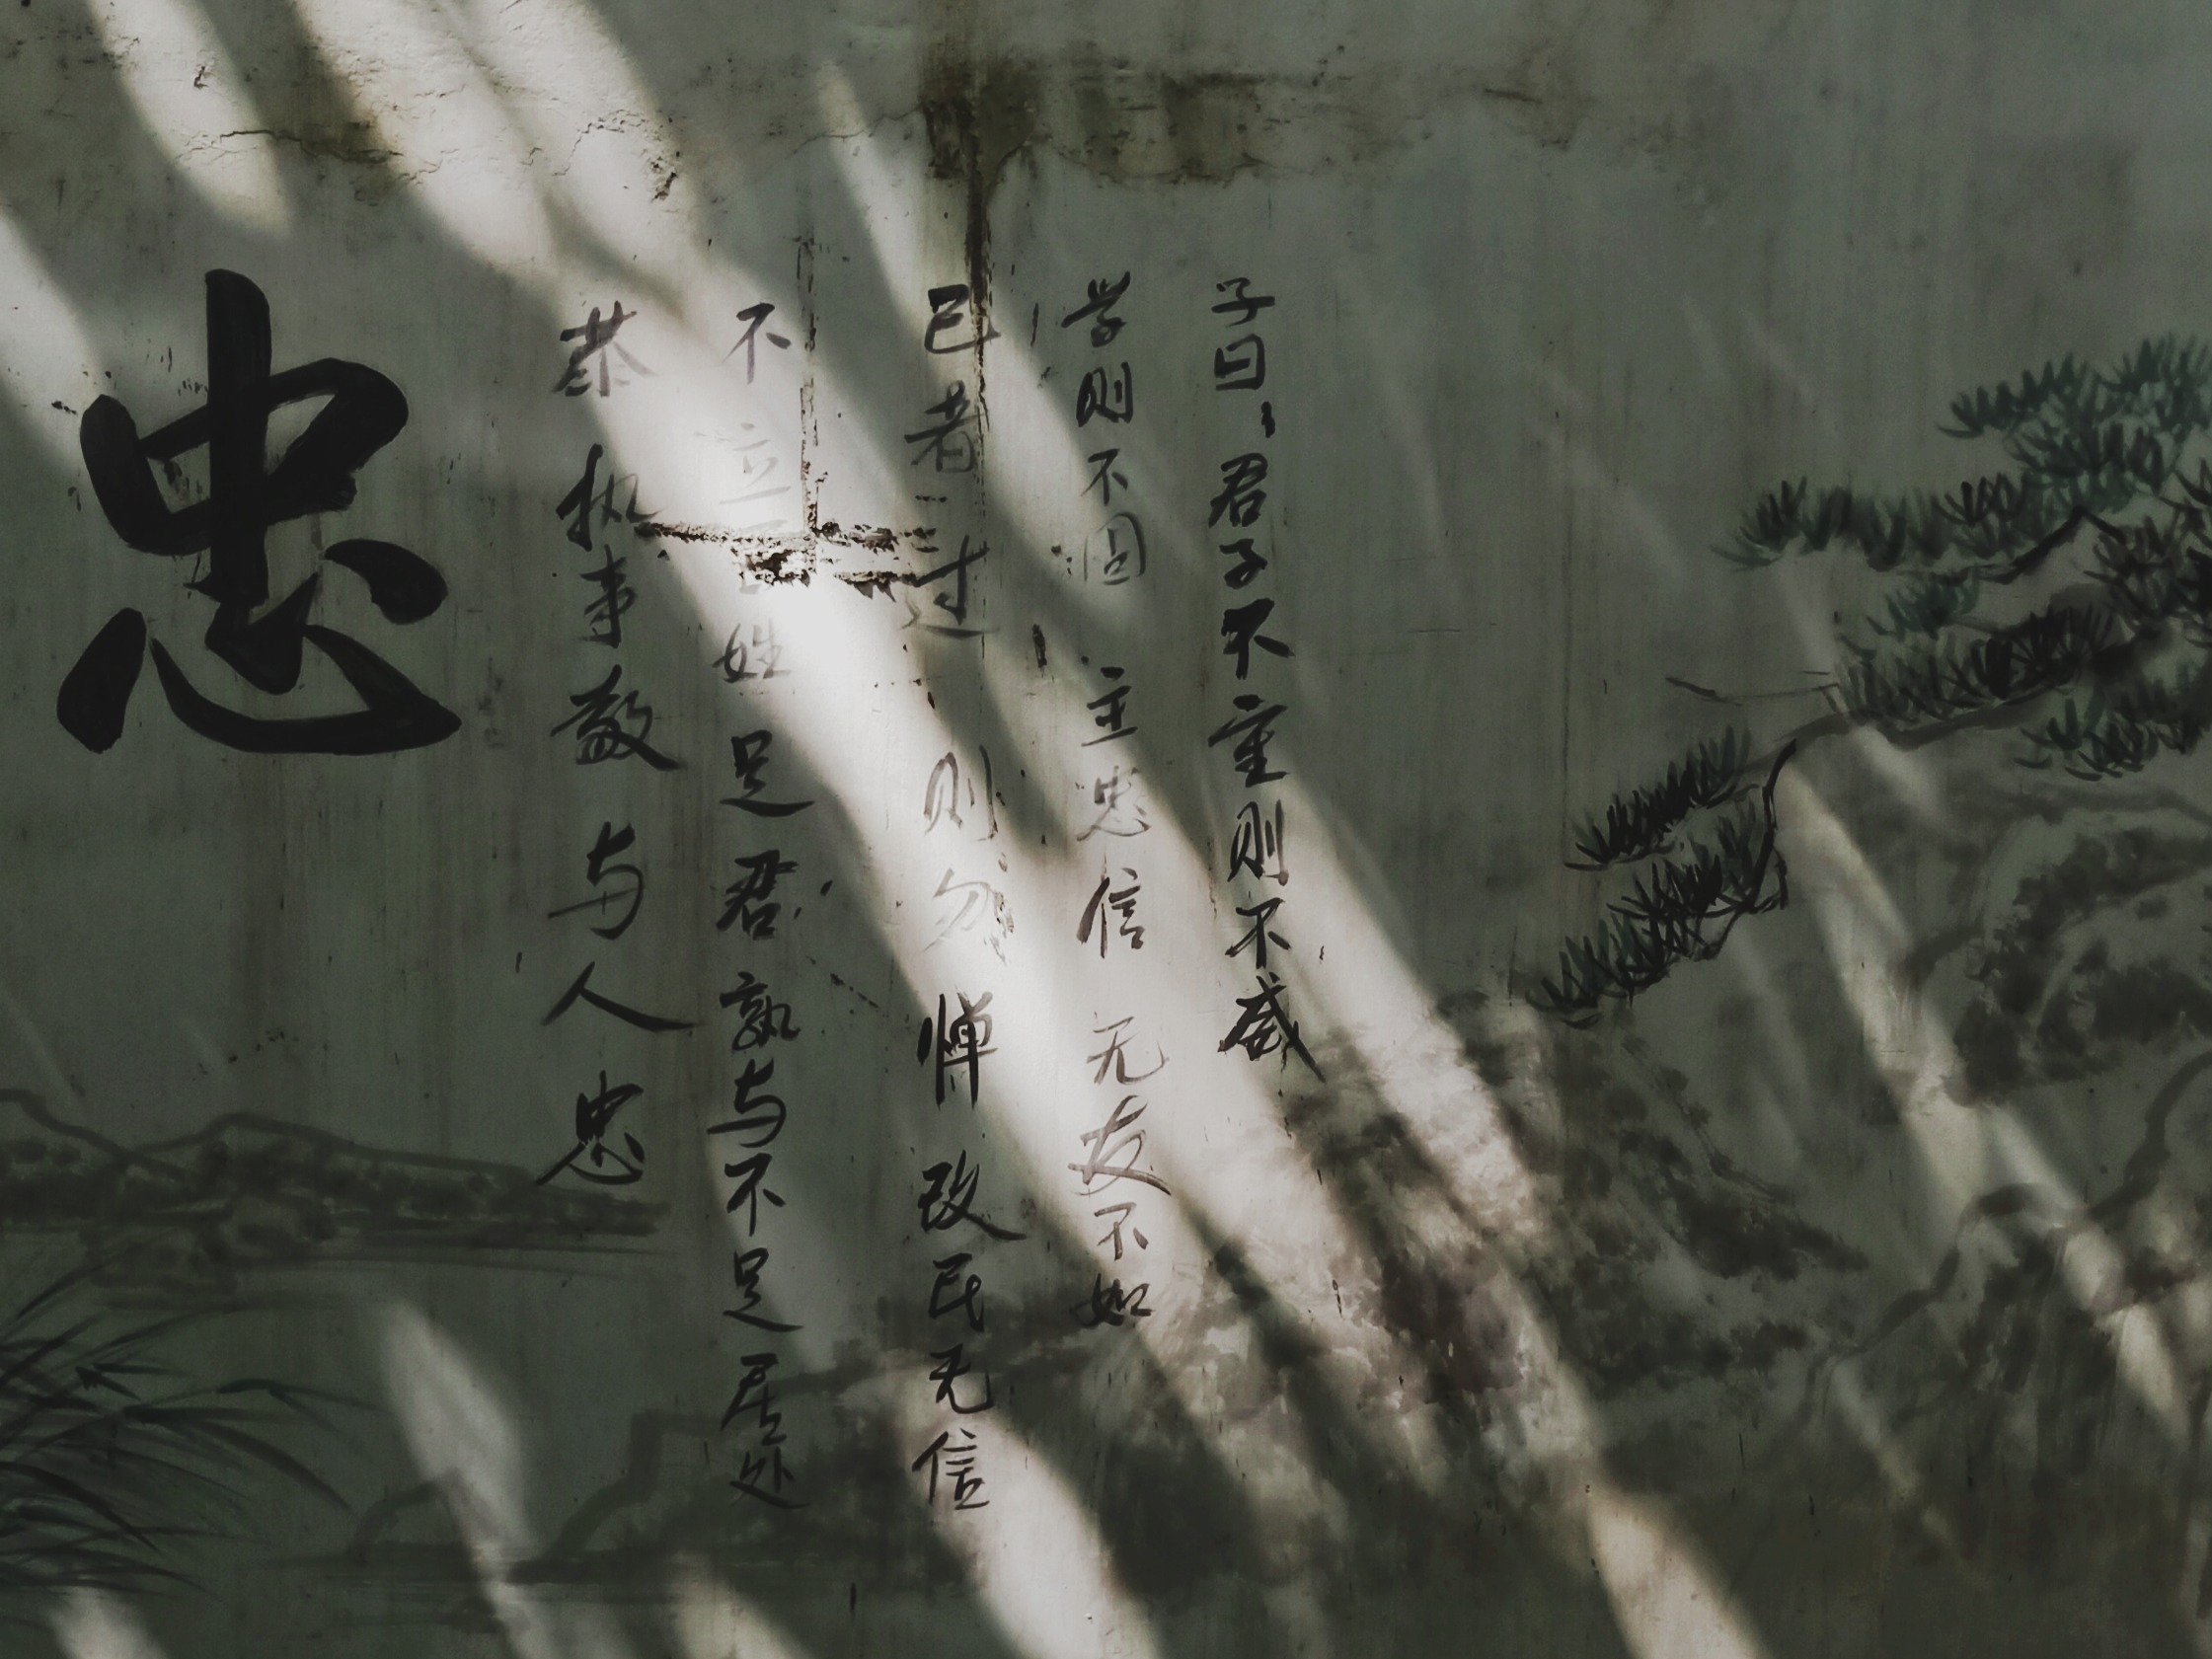 子曰：君子不重则不威
学则不固 主忠信 无友不如
己者 过 则勿惮改民无信
不立 百姓足君孰与不足居处
恭执事敬与人忠
忠